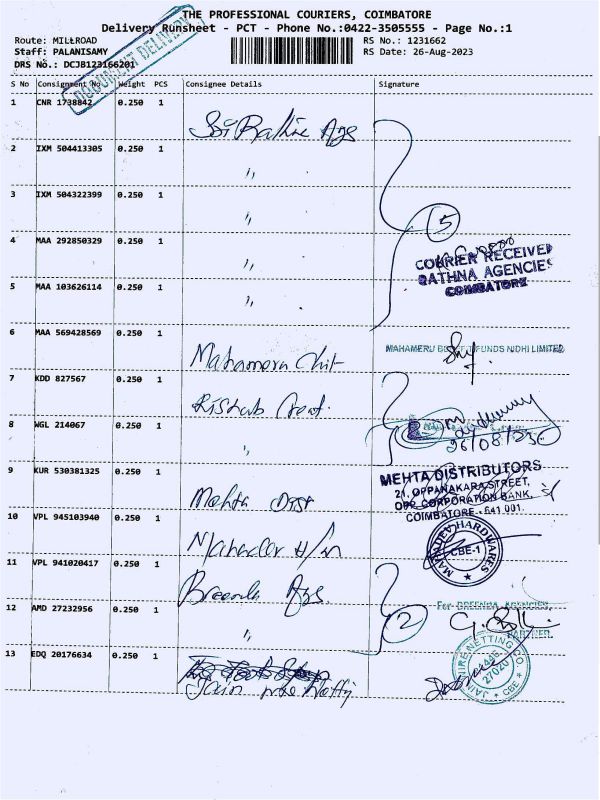 THE PROFESSIONAL COURIERS, COIMBATORE
Delivery Runsheet - PCT - Phone No.:0422-3505555 - Page No.:1
Route: MILLROAD
RS No.: 1231662
Staff: PALANISAMY
RS Date: 26-Aug-2023
DRS No.: DCJB123166201
DOCUMENT DELIVERY
S No Consignment No Weight PCS Consignee Details Signature
1 CNR 1738842 0.250 1 Sri Rathna Ags
2 IXM 504413305 0.250 1 "
3 IXM 504322399 0.250 1 "
5
4 MAA 292850329 0.250 1 "
COURIER RECEIVED
RATHNA AGENCIES
COIMBATORE
5 MAA 103626114 0.250 1 "
6 MAA 569428569 0.250 1 Mahameru Chit
MAHAMERU FUNDS NIDHI LIMITED
7 KDD 827567 0.250 1 Rishab
8 WGL 214067 0.250 1 "
26/08/23
9 KUR 530381325 0.250 1 Mehta Dist
MEHTA DISTRIBUTORS
21, OPPANAKARA STREET,
OPP. CORPORATION BANK,
COIMBATORE - 641 001.
10 VPL 945103940 0.250 1 Mahadev H/W
MAHADEV HARDWARES
CBE-1
11 VPL 941020417 0.250 1 Breenda Ags
12 AMD 27232956 0.250 1 "
2
For AGENCIES
PARTNER
13 EDQ 20176634 0.250 1 Jain wire Netting
JAIN WIRE NETTING CO.
27020
CBE